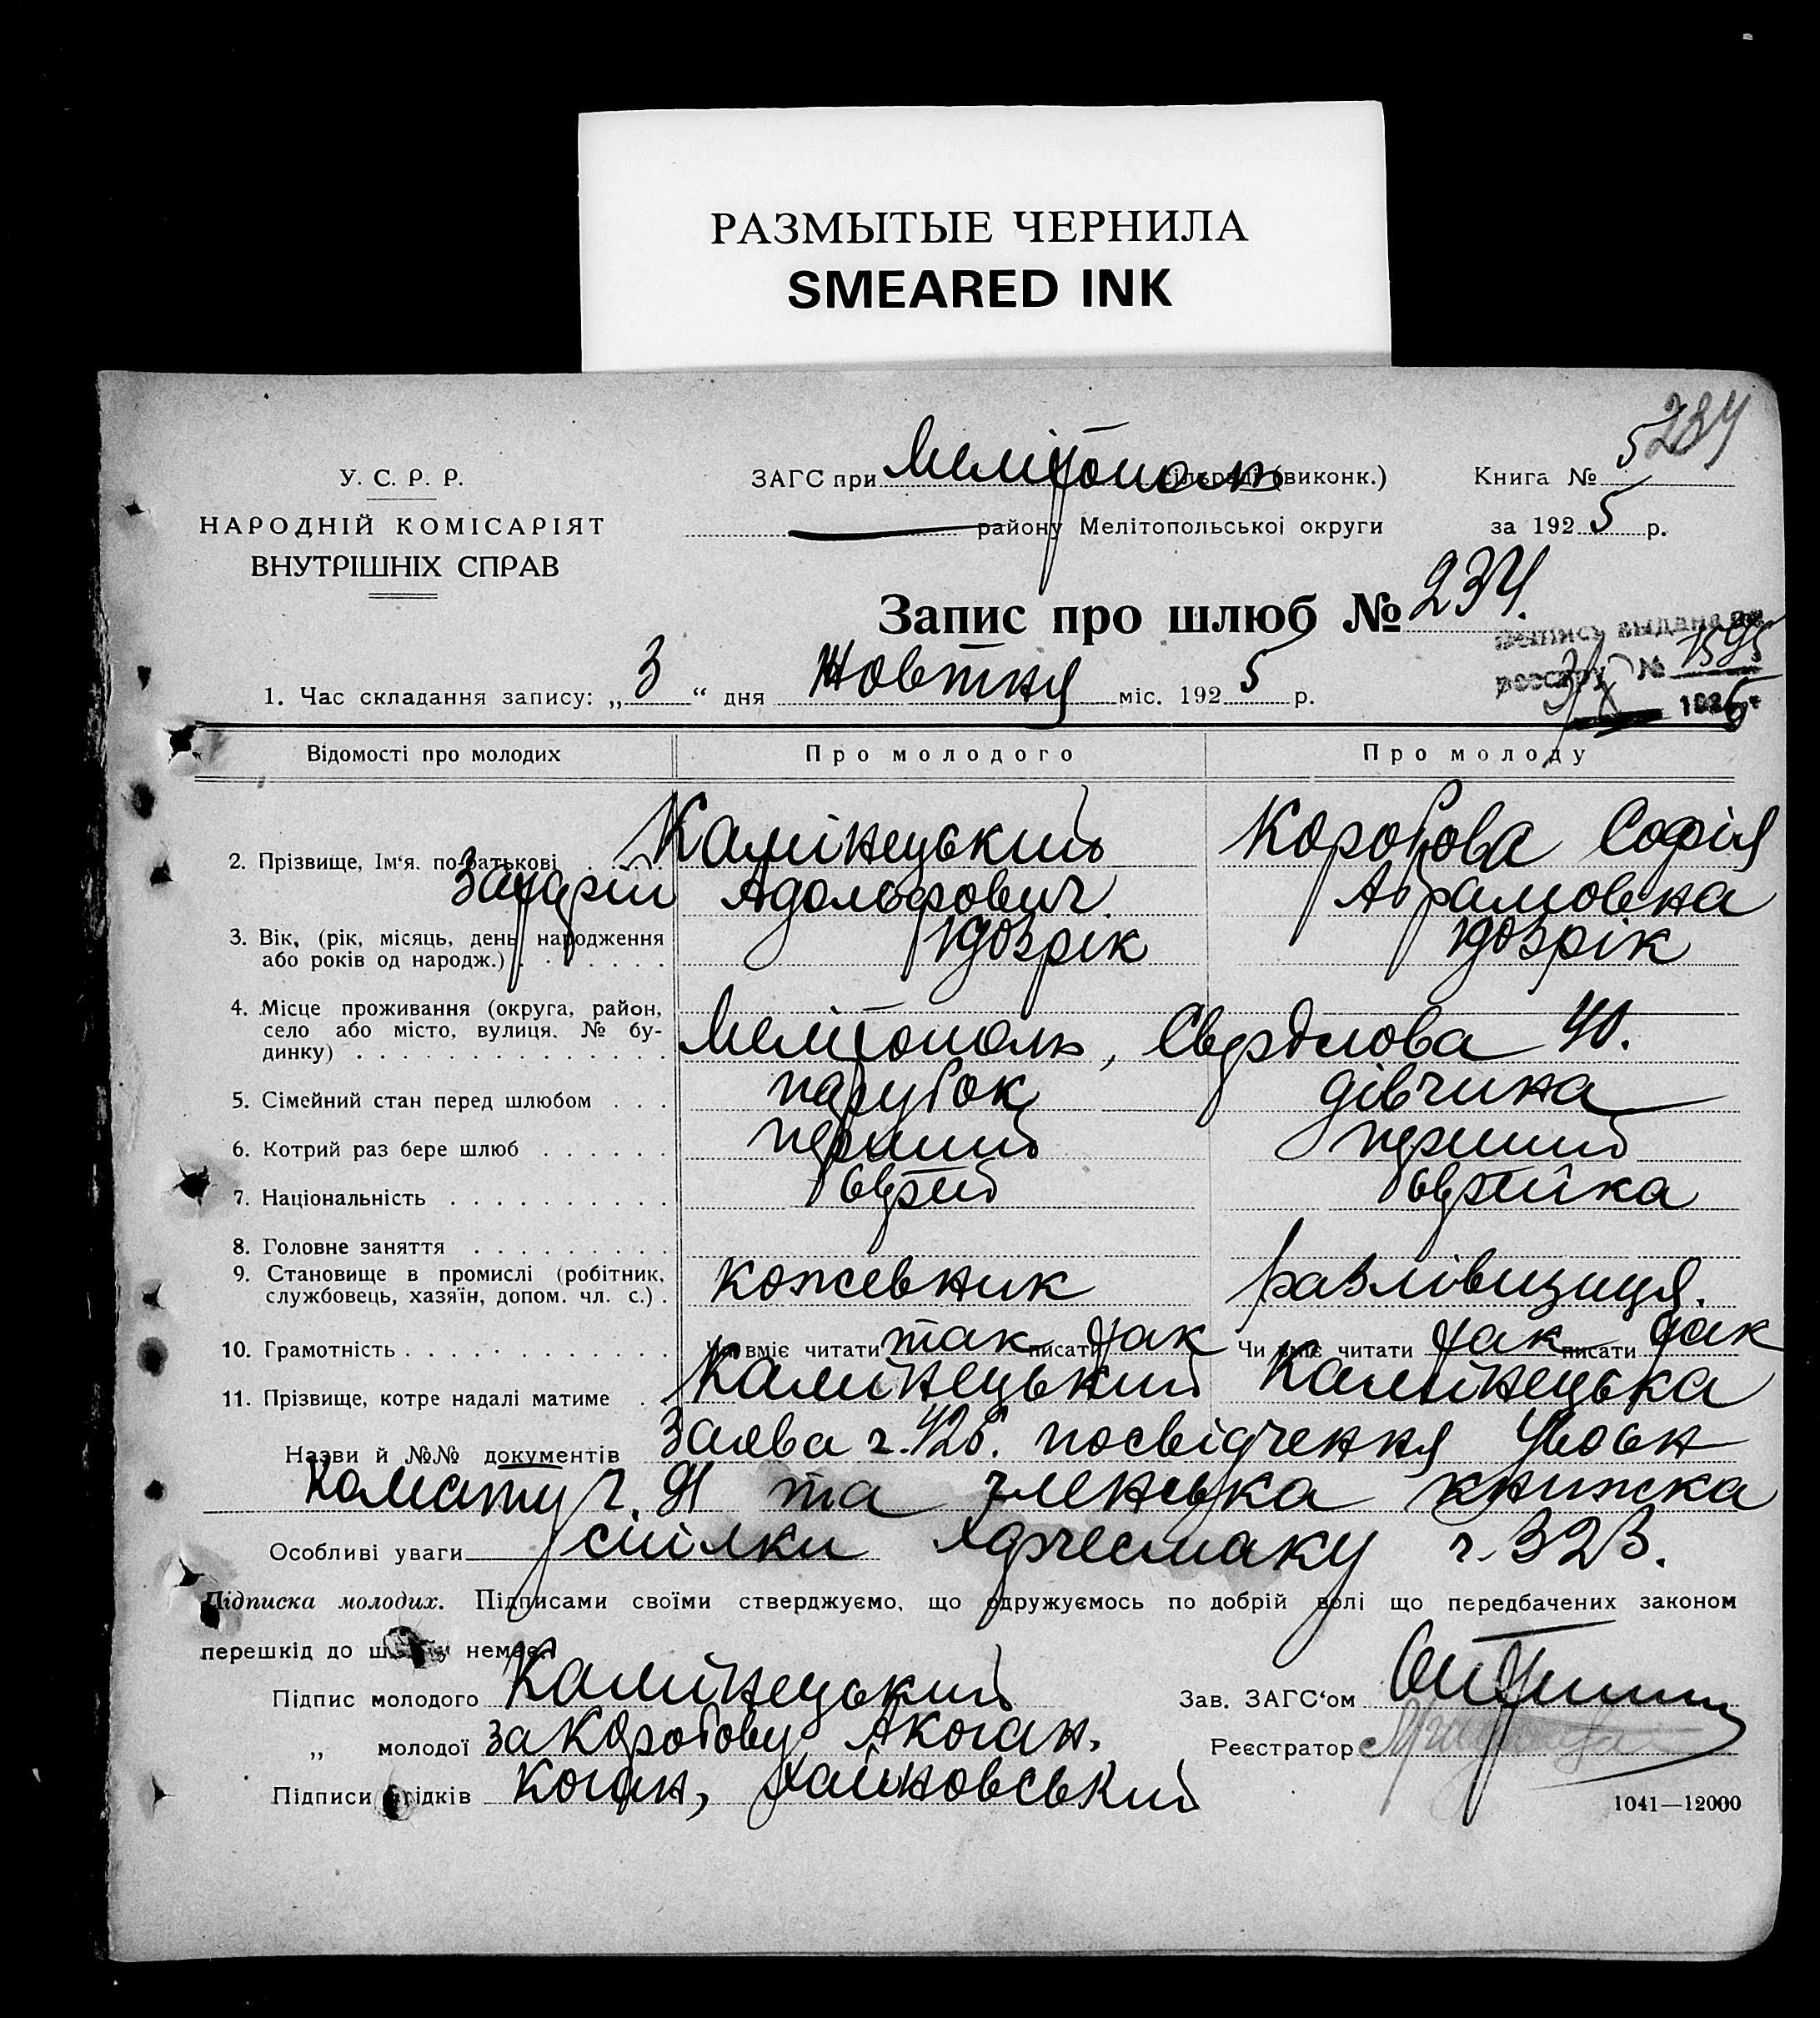 РАЗМЫТЫЕ ЧЕРНИЛА
SMEARED INK
234
У. С. Р. Р.
НАРОДНІЙ КОМІСАРІЯТ
ВНУТРІШНІХ СПРАВ
ЗАГС при Мелітополь сільраді (виконк.)
району Мелітопольської округи
Книга № 5
за 1925 р.
Запис про шлюб № 234.
выдана
№ 1595
1925
1. Час складання запису: „ 3 “ дня Жовтня міс. 1925 р.
Відомості про молодих Про молодого Про молоду
2. Прізвище, Ім‘я. по батькові . . . Камінецький Коробова Софія
Захарій Адольфович. Абрамовна
3. Вік, (рік, місяць, день народження 1903 рік 1903 рік
або років од народж.) . . . . . . .
4. Місце проживання (округа, район,
село або місто, вулиця. № бу- Мелітополь, Свердлова 40.
динку) . . . . . . . . . . . . . .
5. Сімейний стан перед шлюбом . . . парубок дівчина
6. Котрий раз бере шлюб . . . . . . перший перший
7. Національність . . . . . . . . . . єврей єврейка
8. Головне заняття . . . . . . . . .
9. Становище в промислі (робітник, кожевник
службовець, хазяїн, допом. чл. с.) .
10. Грамотність . . . . . . . . . . . . Чи вміє читати так писати так Чи вміє читати так писати так
11. Прізвище, котре надалі матиме . . Камінецький Камінецька
Назви й №№ документів Заява ч. 426. посвідчення
ч. 91 та членська книжка
Особливі уваги спілки ч. 323.
Підписка молодих. Підписами своїми стверджуємо, що одружуємось по добрій волі що передбачених законом
перешкід до шлюбу немає.
Підпис молодого Камінецький Зав. ЗАГС‘ом
„ молодої за Коробову А Коган. Реєстратор
Підписи свідків Коган,
1041—12000